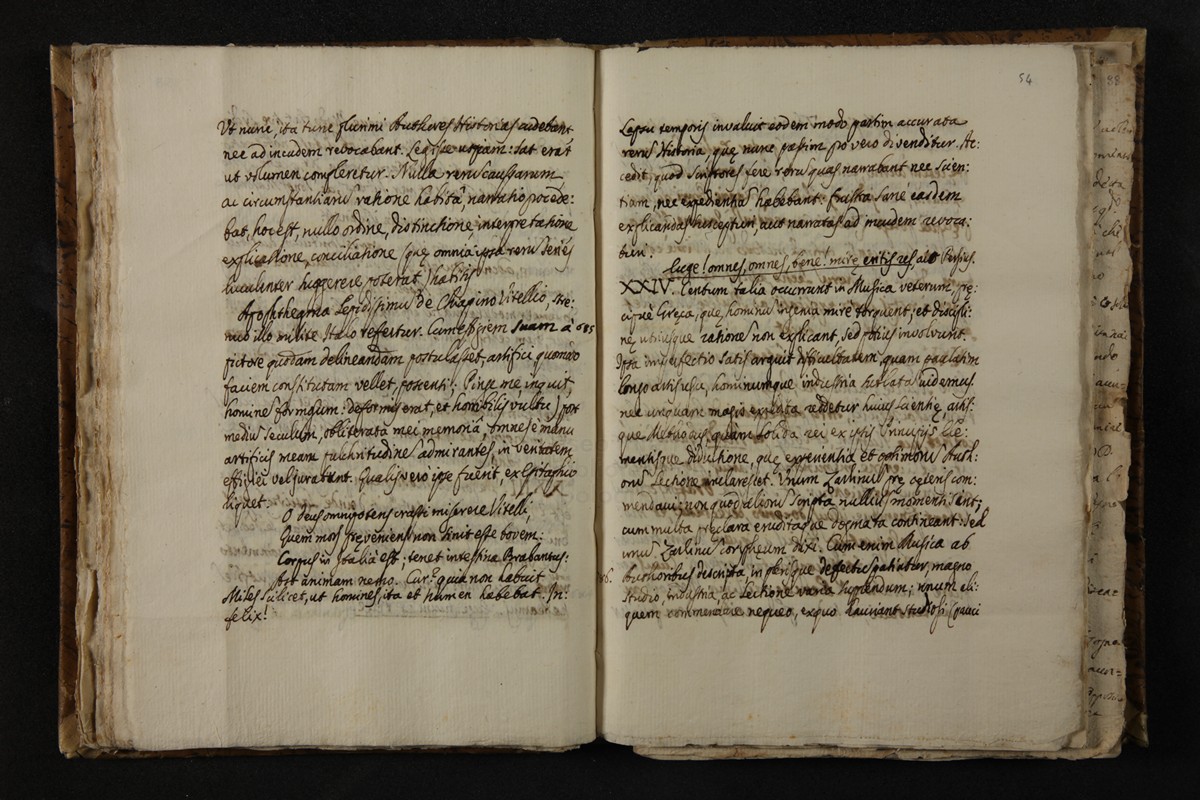 Ut nunc, ita tunc plurimi Authores Historias cudebant
nec ad incudem revocabant. Legisse utquam: sat erat
ut volumen compleretur. Nulla rerum caussarum,
ac circumstantiarum ratione habitâ, narratio procede:
bat, hoc est, nullo ordine, distinctione, interpretatione
explicatione, conciliatione (quę omnia ipsa rerum series
luculenter suggerere poterat) habitis.
Apophthegma Lepidissimum de Chiapino Vitellio, stre:
nuo illo milite Italo refertur. Cum effigiem suam à 685
pictore quodam delineandam postulasset, artifici quomodo
faciem constitutam vellet, poscenti: Pinge me, inquit,
homines formosum: deformis erat, et horribilis vultu) post
medium seculum, obliterata mei memoriâ, omnes è manu
artificis meam pulchritudinem admirantes, in veritatem
effigiei vel jurabunt. Qualis verò ipse fuerit, ex Epitaphio
liquet.
O deus omnipotens crassi miserere Vitelli,
Quem mors pręveniens non sinit esse bovem:
Corpus in Italia est, tenet intestina Brabantus:
Ast animam nemo. Cur? quia non habuit
Miles scilicet, ut homines ita et numen habebat. In:
felix!
54
88
Lapsu temporis invaluit eodem modo passim accurata
rerum Historia, quę nunc passim pro vero divenditur. Ac:
cedit, quod scriptores fere rerum quas narrabant nec scien:
tiam, nec experientiam habebant: frustra sanè easdem
explicandas susceptum aut narratas ad incudem revoca:
turi.
Euge! omnes, omnes, bene! mirę eritis res, ait Persius.
XXIV. Centum talia occurrunt in Musica veterum, prę:
cipuè Gręca, quę hominum ingenia mirè torquent, et discipli:
nę utriusque rationem non explicant, sed potius involvunt.
Ipsa imperfectio satis arguit difficultatem, quam paulatim
longo artis usu, hominumque industria sublatam videmus
nec unquam magis expedita reddetur huius scientię artis:
que Methodus, quam solida rei ex ipsis
mentisque diductione, quę experientiâ et optimorum Auth:
orum Lectione inclarescet. Unum Zarlinum prę cęteris com:
mendavi: non quod aliorum scripta nullius momenti sint,
cum multa pręclara eruditaque dogmata contineant: sed
unum Zarlinum coryphęum dixi. Cum enim Musica ab
86. Authoribus descripta in plerisque defectus patiatur, magno
studio, industria, ac Lectione varia supplendum; unum ali:
quem commendare nequeo, ex quo hauriant studiosi (pauci